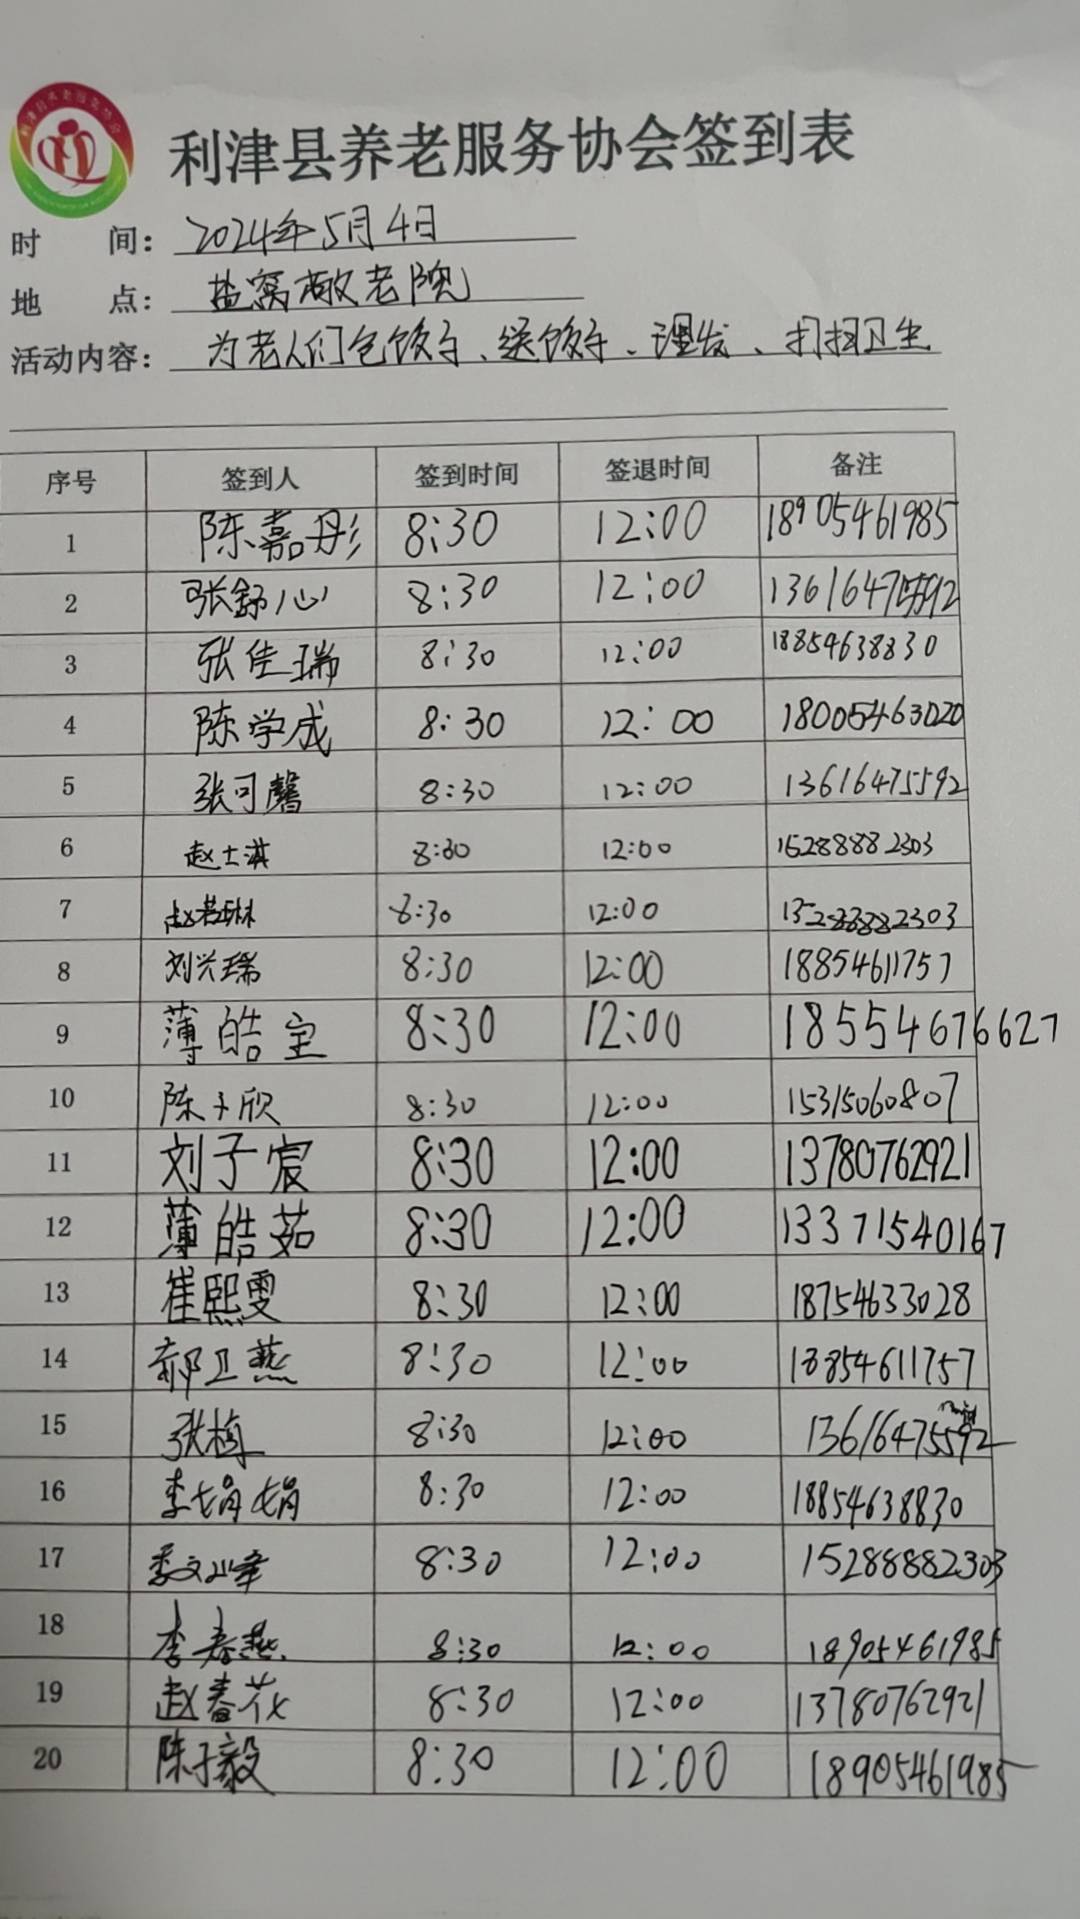 利津县养老服务协会签到表
时 间: 2024年5月4日
地 点: 盐窝敬老院
活动内容: 为老人们包饺子、送饺子、理发、打扫卫生
序号 签到人 签到时间 签退时间 备注
1 陈嘉彤 8:30 12:00 18905461985
2 张舒心 8:30 12:00 13616475592
3 张佳瑞 8:30 12:00 18854638830
4 陈学成 8:30 12:00 18005463020
5 张可馨 8:30 12:00 13616475592
6 赵士淇 8:30 12:00 15288882303
7 赵若琳 8:30 12:00 15288882303
8 刘兴瑞 8:30 12:00 18854611757
9 薄皓宝 8:30 12:00 18554676627
10 陈子欣 8:30 12:00 15315060807
11 刘子宸 8:30 12:00 13780762921
12 薄皓茹 8:30 12:00 13371540167
13 崔熙雯 8:30 12:00 18754633028
14 郝卫燕 8:30 12:00 18854611757
15 张梅 8:30 12:00 13616475592
16 李娟娟 8:30 12:00 18854638830
17 8:30 12:00 15288882303
18 李春燕 8:30 12:00 18905461985
19 赵春花 8:30 12:00 13780762921
20 陈子毅 8:30 12:00 18905461985